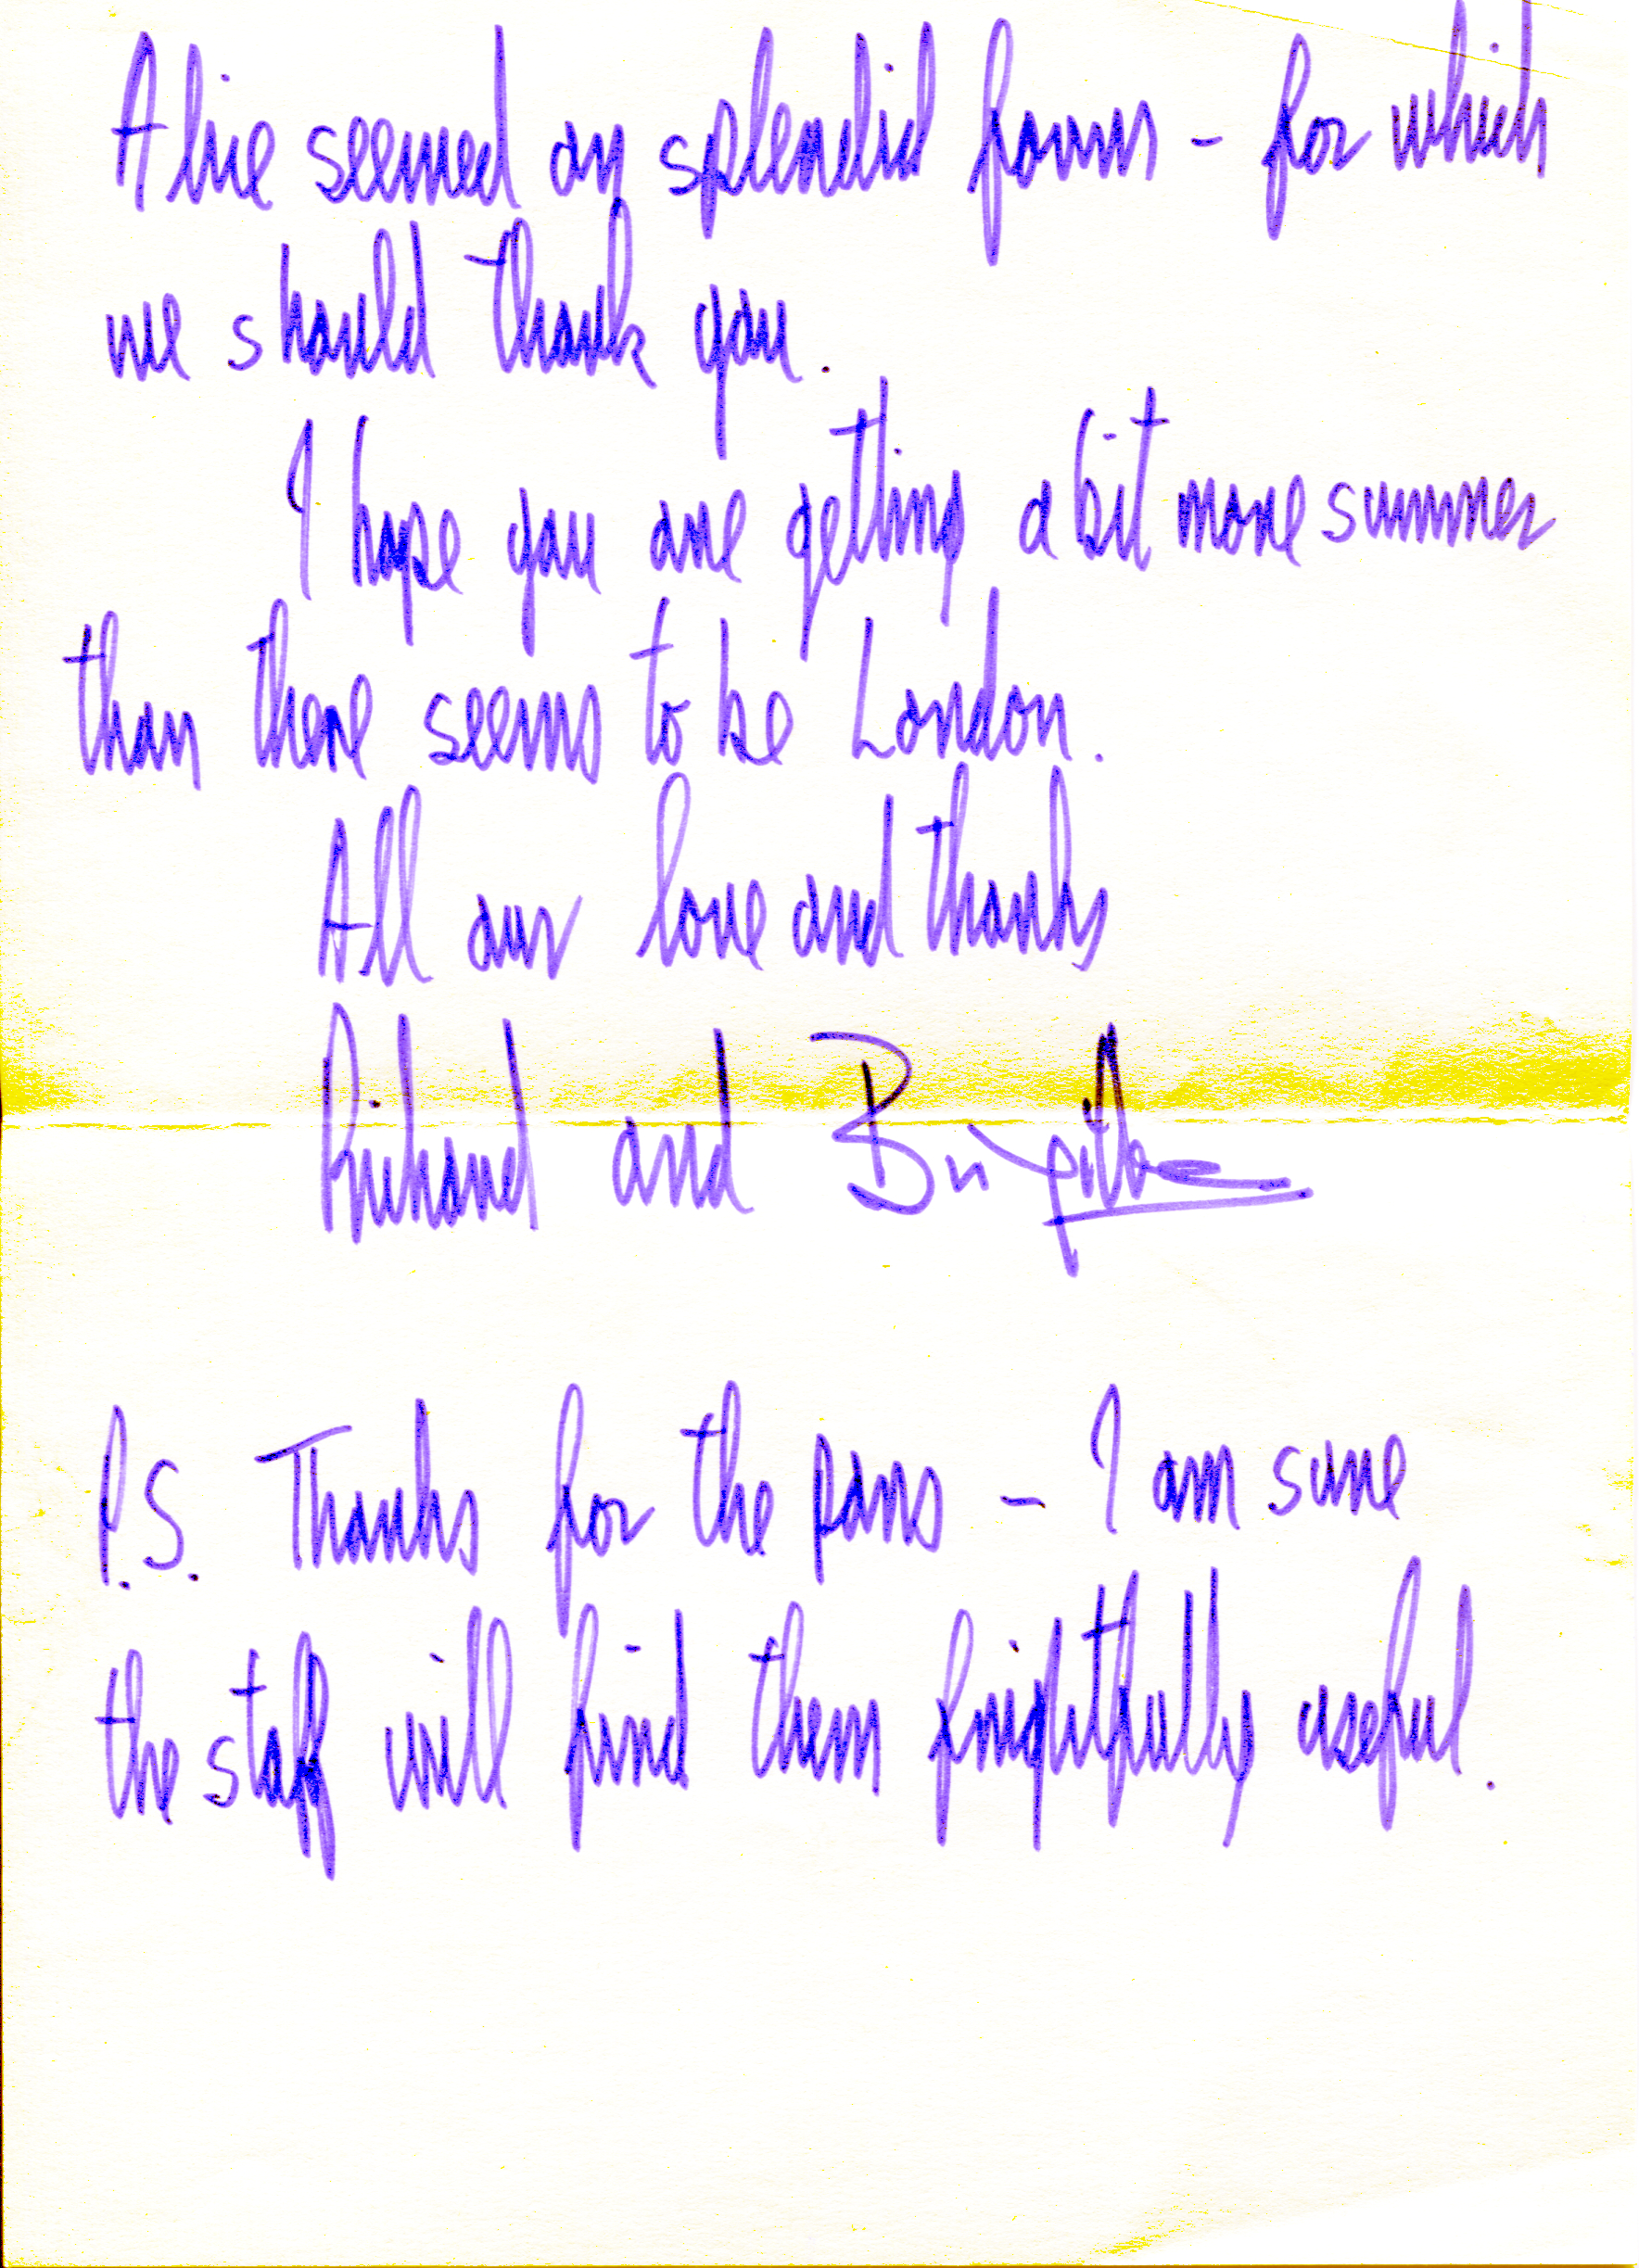 Alice seemed on splendid form - for which
we should thank you.
I hope you are getting a bit more summer
than there seems to be London.
All our love and thanks
Richard and Birgitta
P.S. Thanks for the pans - I am sure
the staff will find them frightfully useful.